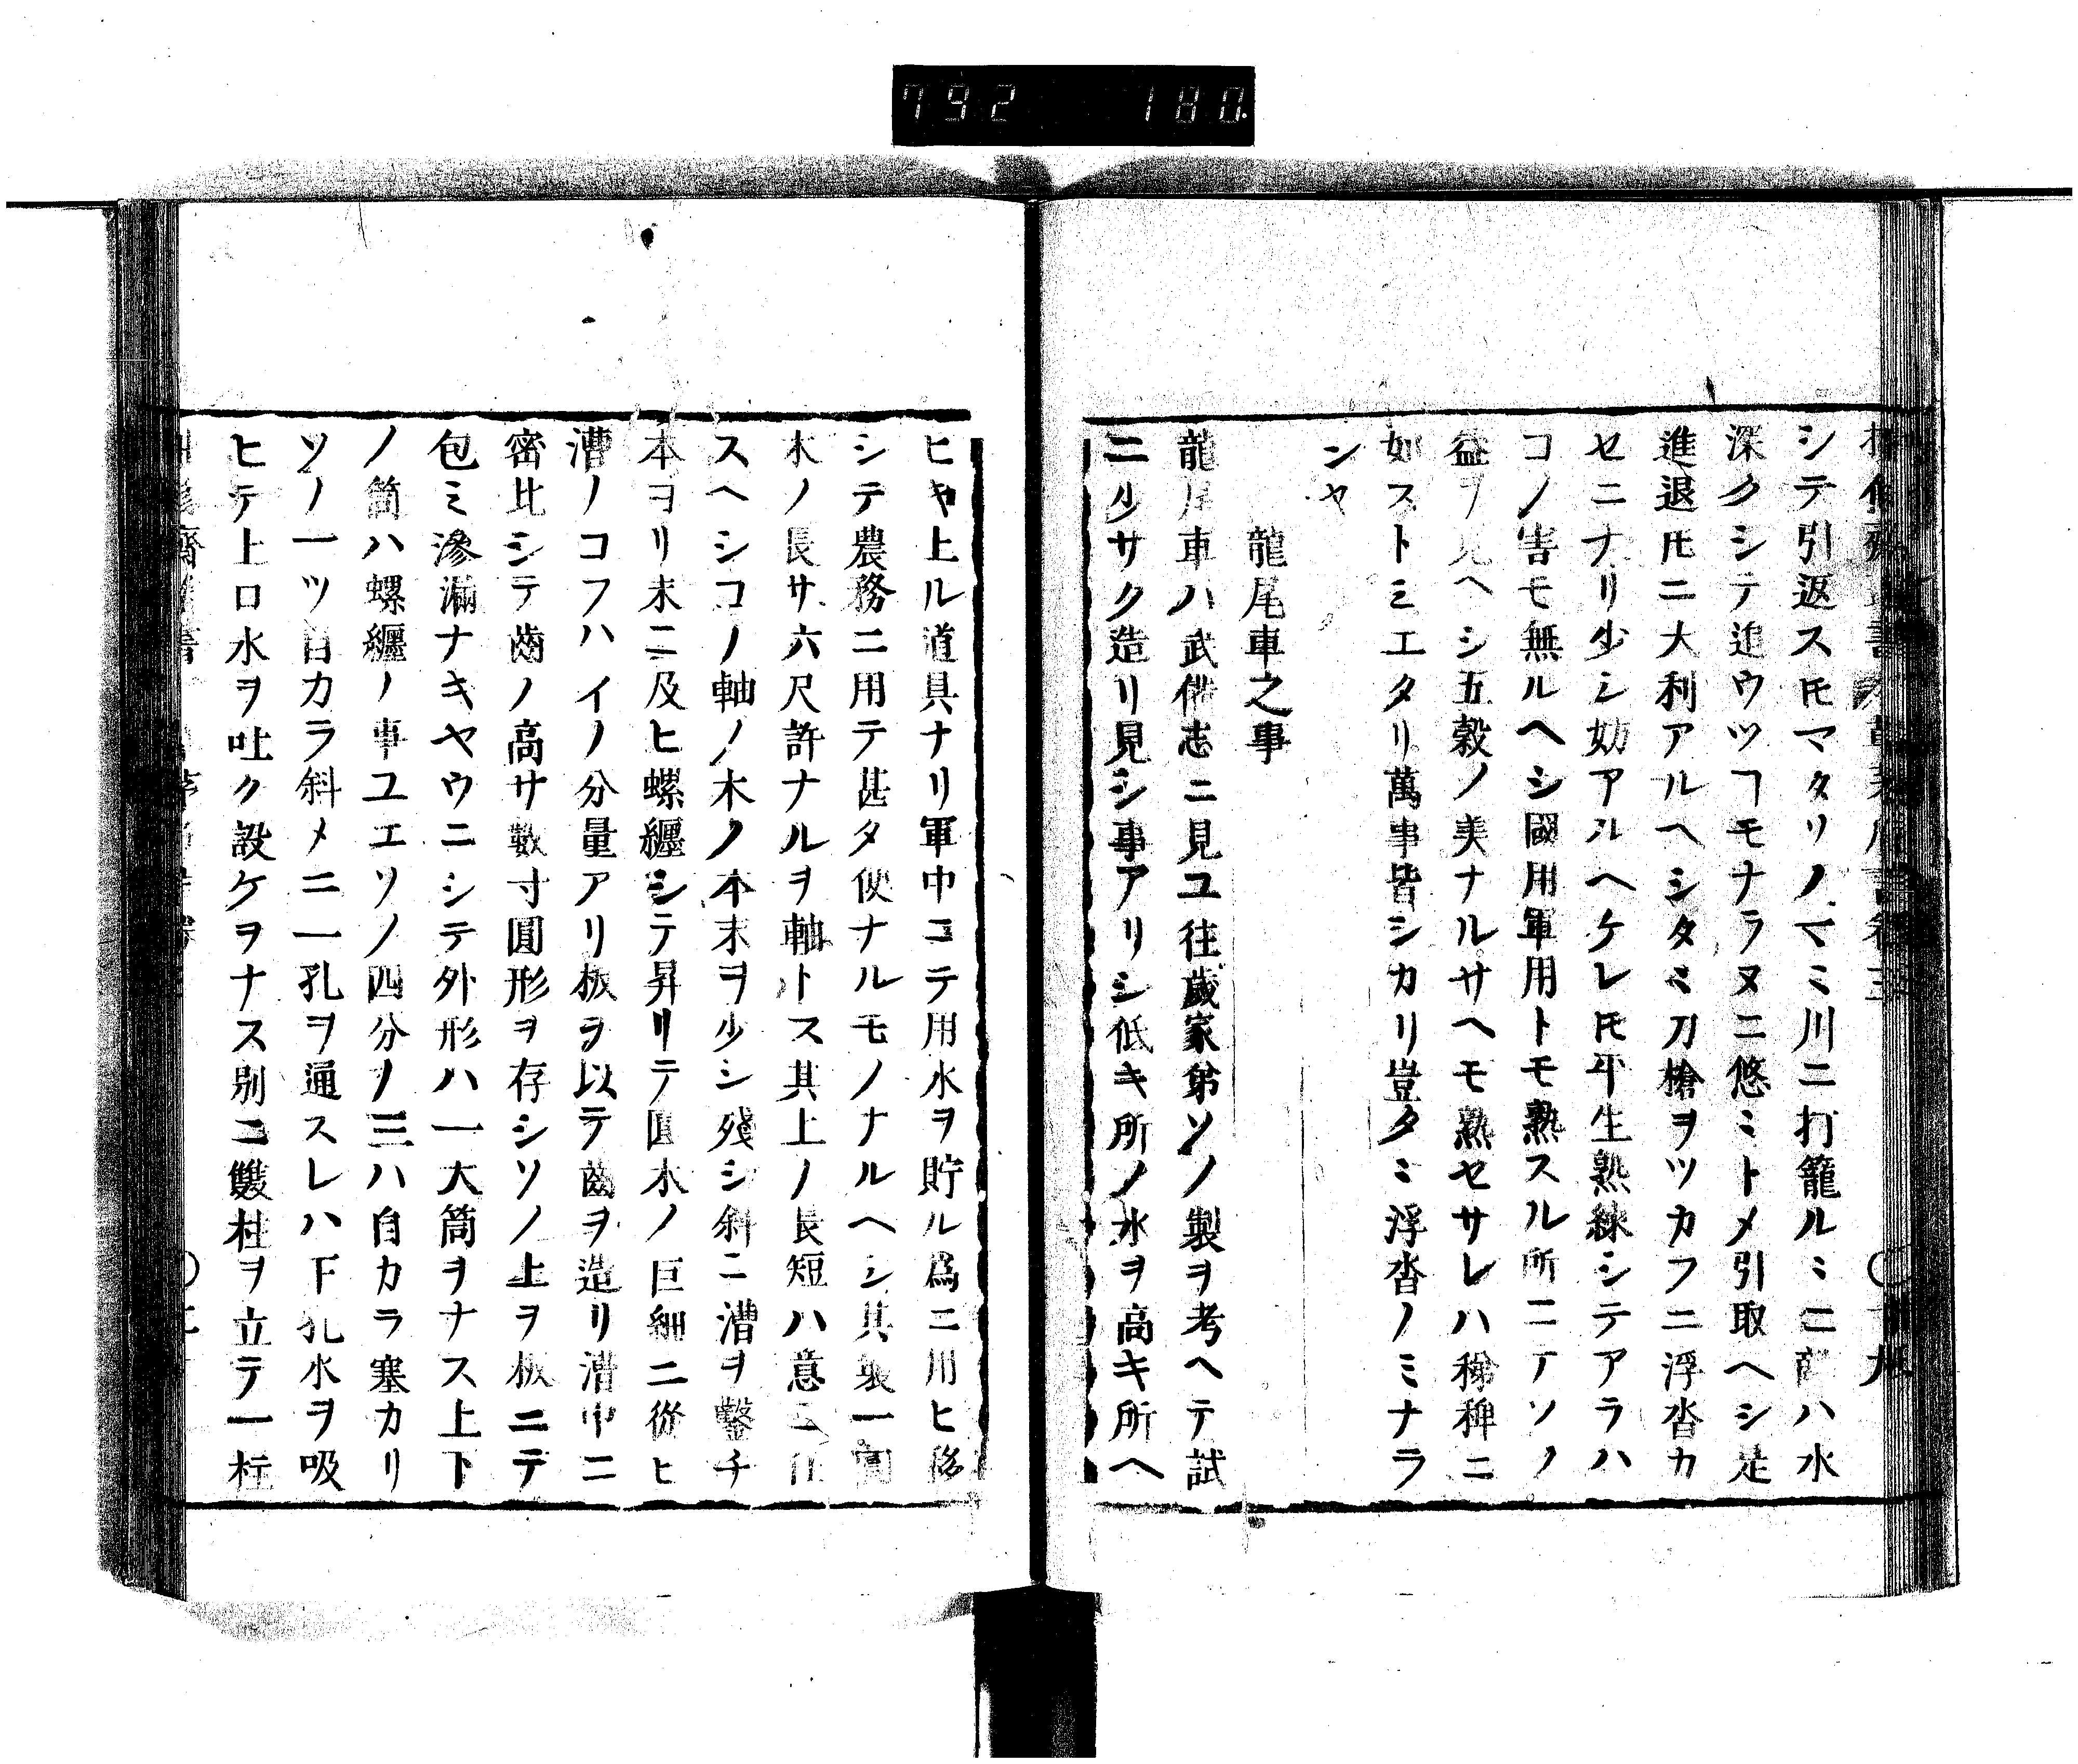 792 180
シテ引返スㇳモマタリノマミ川ニ打籠ルミニハ水
深クシテ追ウツヿモナラヌニ悠ミトメ引取ヘシ是
進退ㇳモニ大利アルヘシタミ刀槍ヲツカフニ浮沓カ
セニナリ少シ妨アルヘケレㇳモ平生熟練シテアラハ
コノ害モ無ルヘシ國用軍用トモ熟スル所ニテソノ
益ヲ見ヘシ五穀ノ美ナルサヘモ熟セサレハ稊稗ニ
如ストミエタリ萬事皆シカリ豈タミ浮沓ノミナラ
ンヤ
龍尾車之事
龍尾車ハ武備志ニ見ユ往歲家弟ソノ製ヲ考ヘテ試
ニ少サク造リ見シ事アリシ低キ所ノ水ヲ高キ所ヘ
ヒキ上ル道具ナリ軍中ニテ用水ヲ貯ル爲ニ用ヒ
シテ農務ニ用テ甚タ便ナルモノナルヘシ其製一圓
木ノ長サ六尺許ナルヲ軸トス其上ノ長短ハ意ニ任
スヘシコノ軸ノ木ノ本末ヲ少シ殘シ斜ニ漕ヲ鑿チ
本ヨリ末ニ及ヒ螺纏シテ昇リテ圓木ノ巨細ニ從ヒ
漕ノコフハイノ分量アリ板ヲ以テ齒ヲ造リ漕中ニ
密比シテ齒ノ高サ數寸圓形ヲ存シソノ上ヲ板ニテ
包ミ滲漏ナキヤウニシテ外形ハ一大筒ヲナス上下
ノ筒ハ螺纏ノ事ユエソノ四分ノ三ハ自カラ塞カリ
ソノ一ツ自カラ斜メニ一孔ヲ通スレハ下孔水ヲ吸
ヒテ上口水ヲ吐ク設ケヲナス別ニ雙柱ヲ立テ一柱